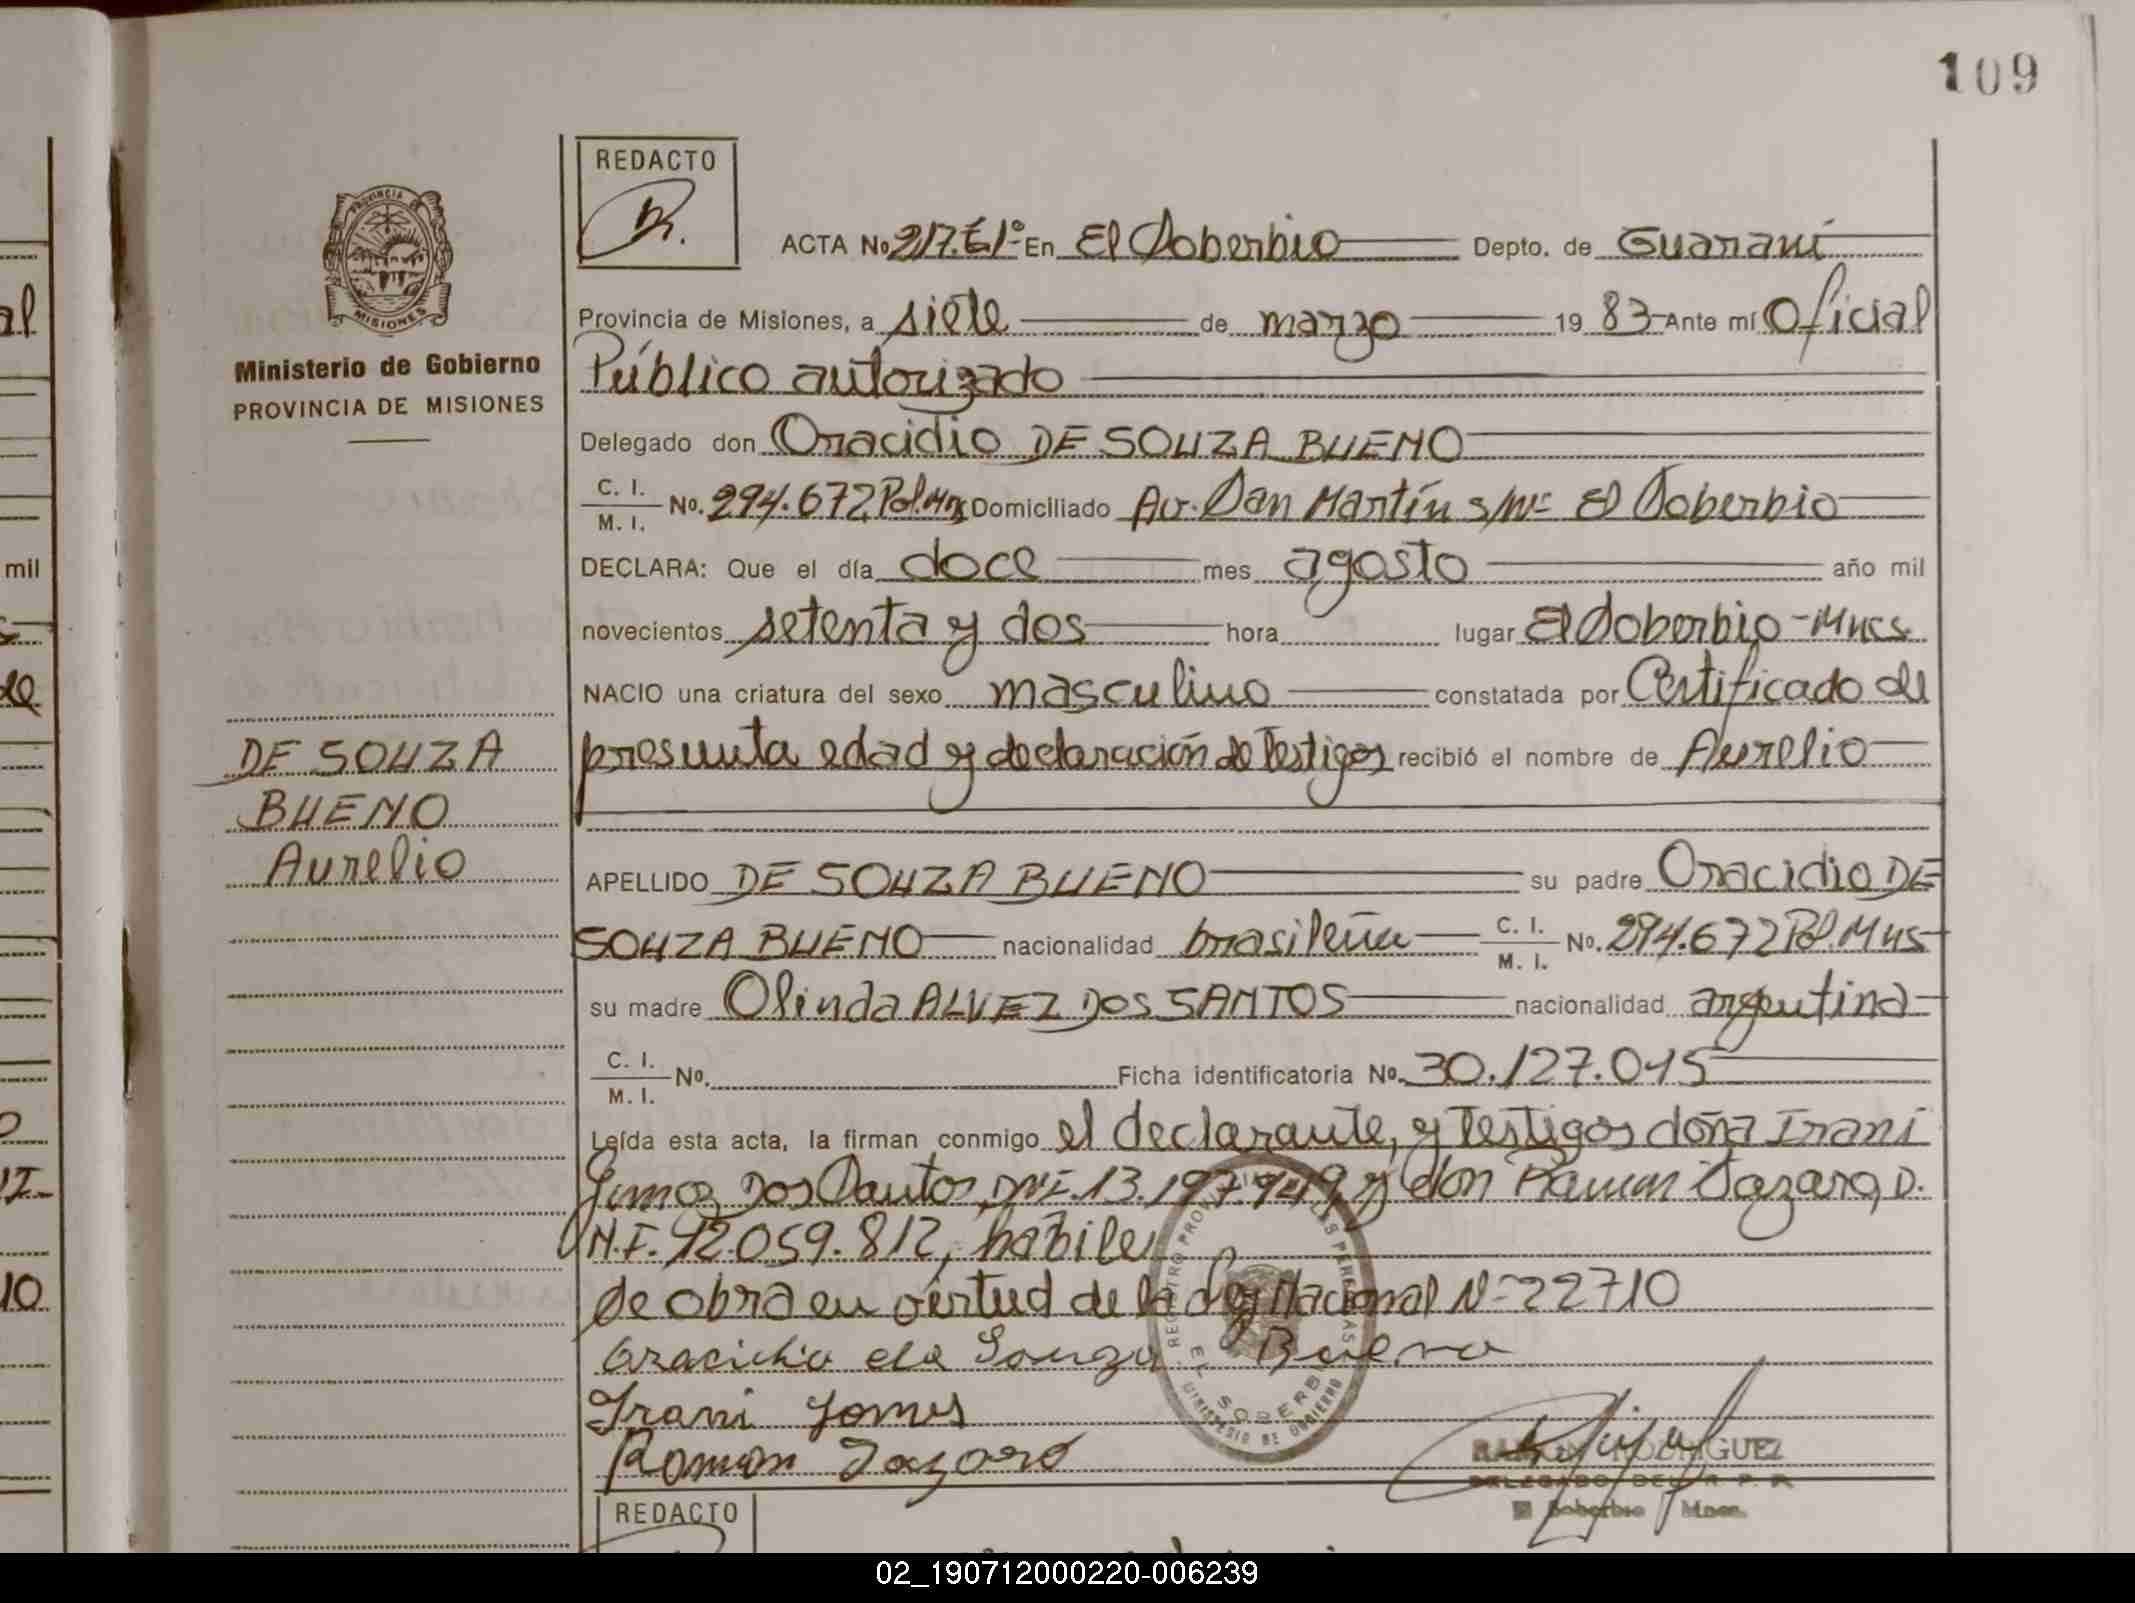 109
REDACTO
ACTA No 217. El°- En El Soberbio Depto. de Guaraní
Provincia de Misiones, a siete de marzo 19 83 Ante mí Oficial
Público autorizado
Delegado don Oracidio DE SOUZA BUENO
C. I. M. I. No. 294.672 Pol. Mns Domiciliado Av. San Martín s/nº El Soberbio
DECLARA: Que el día doce mes agosto año mil
novecientos setenta y dos hora lugar El Soberbio - Mnes
NACIO una criatura del sexo masculino constatada por Certificado de
presunta edad y declaración de Testigos recibió el nombre de Aurelio
APELLIDO DE SOUZA BUENO su padre Oracidio DE
SOUZA BUENO nacionalidad brasileña C. I. M. I. No. 294.672 Pol. Mns
su madre Olinda ALVEZ DOS SANTOS nacionalidad argentina
C. I. M. I. No. Ficha identificatoria No. 30.127.015
Leída esta acta, la firman conmigo el declarante, y Testigos doña Irani
Dos Santos, DNI. 13.197.949, y don Ramon Sazaro, D.
N.I. 12.059.812, habile
de obra en virtud de la ley Nacional Nº 22710
Oracidio de Souza Bueno
Irani Gomes
Ramon
REGISTRO PROVINCIAL DE LAS PERSONAS
EL SOBERBIO
MINISTERIO DE GOBIERNO
RAMON RODRIGUEZ
DELEGADO DEL R. P. P.
El Soberbio Mnes.
PROVINCIA DE MISIONES
Ministerio de Gobierno
PROVINCIA DE MISIONES
DE SOUZA
BUENO
Aurelio
REDACTO
al
mil
de
10
02_190712000220-006239